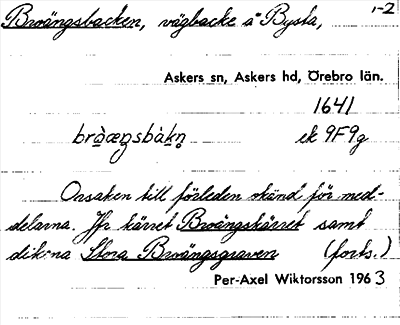 Broängsbacken, vägbacke å Bysta, 1-2
Askers sn, Askers hd, Örebro län.
1641
bròæŋsbàkn̥ ek 9F9g
Orsaken till förleden okänd för med-
delarna. Jfr kärret Broängskärret samt
dikena Stora Broängsgraven (forts.)
Per-Axel Wiktorsson 1963